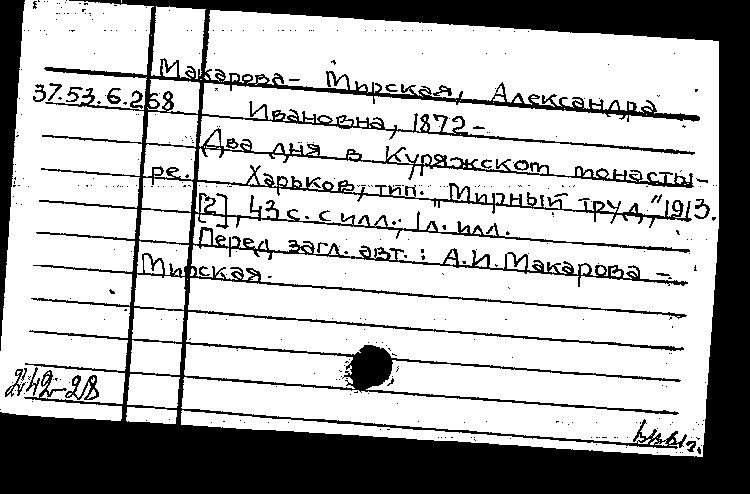 Макарова-Мирская, Александра
37.53.6.268
Ивановна, 1872-
Два дня в Куряжском монасты-
ре. Харьков, тип. "Мирный труд," 1913.
[2], 43 с. с илл.; 1 л. илл.
Перед загл. авт.: А.И. Макарова-
Мирская.
242-28